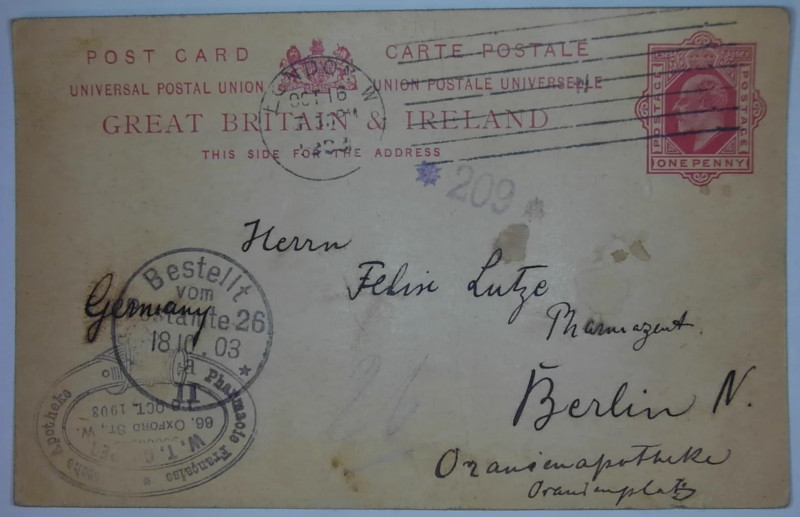 POST CARD CARTE POSTALE
UNIVERSAL POSTAL UNION UNION POSTALE UNIVERSELLE
GREAT BRITAIN & IRELAND
THIS SIDE FOR THE ADDRESS
POSTAGE POSTAGE
ONE PENNY
LONDON. W
OCT 16
N
* 209 *
Herrn
Felix Lutze
Pharmazeut.
Berlin N.
Oranienapotheke
Oranienplatz
Germany
Bestellt
vom
Postamte 26
18.10.03
II
Apotheke
Pharmacie Française
OCT. 1903
66, OXFORD ST., W.
W. T.